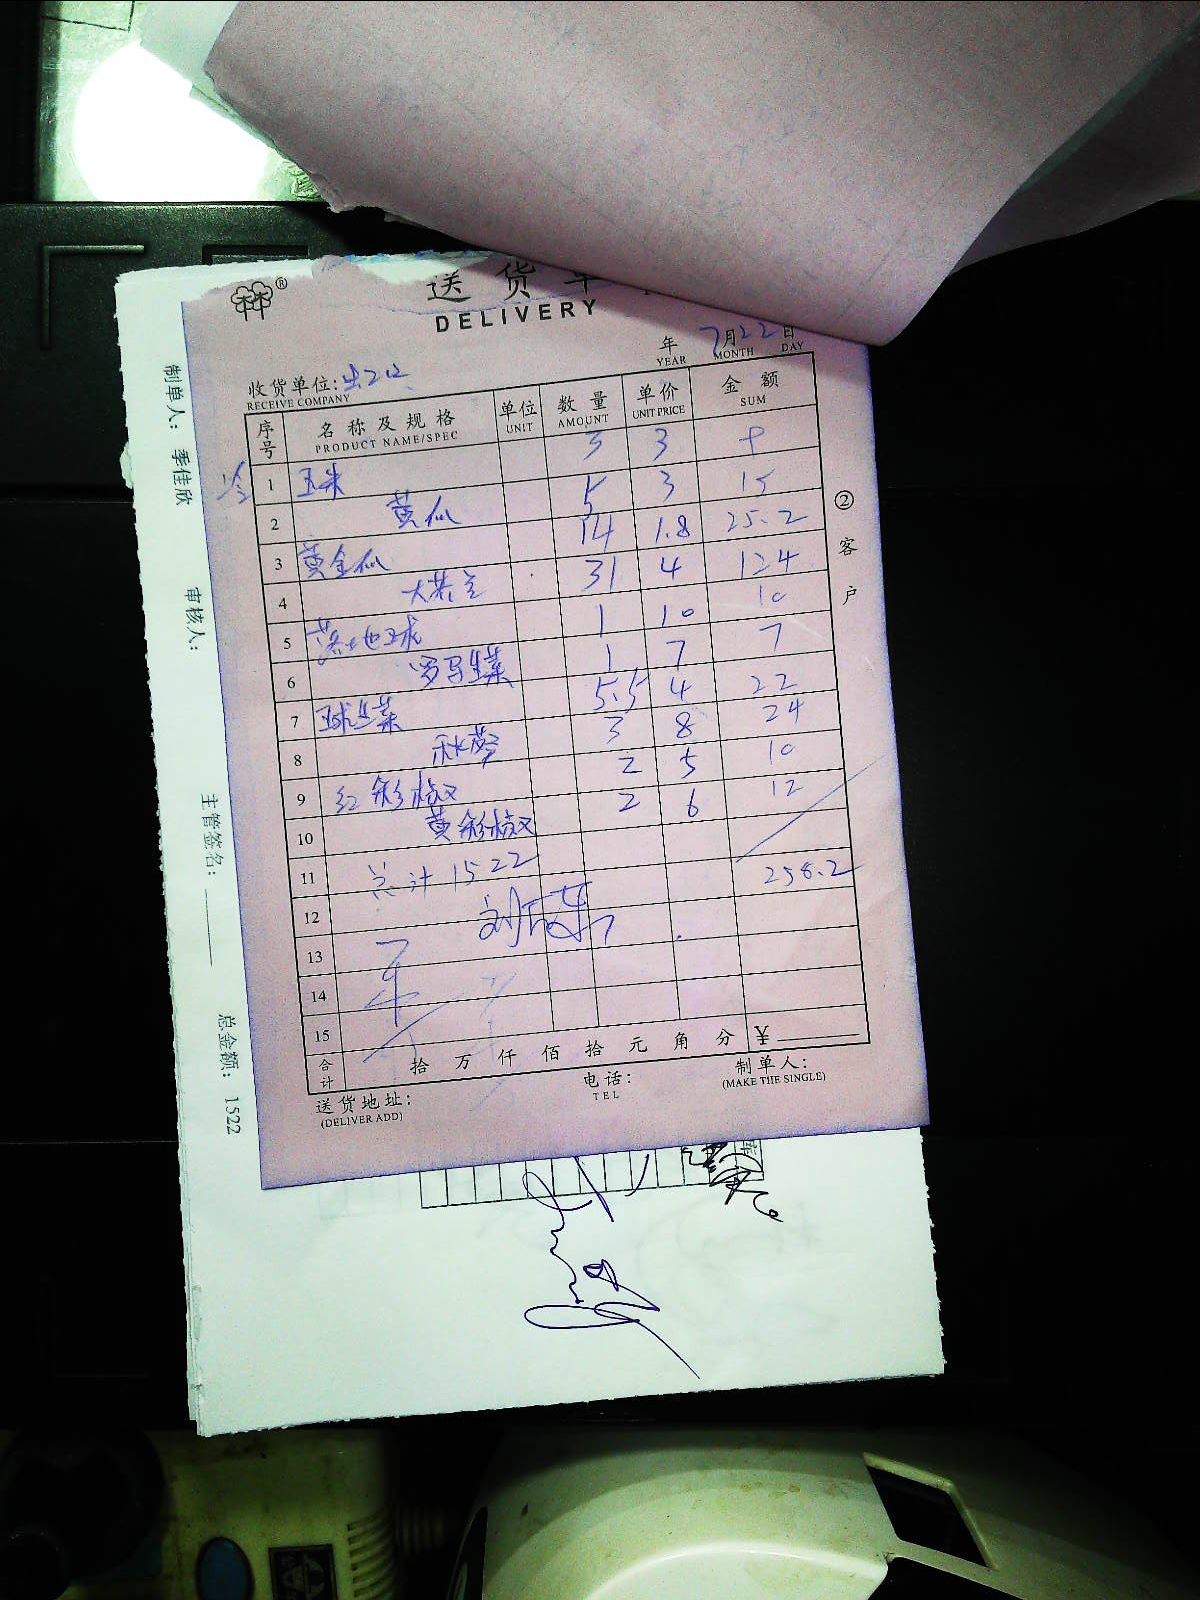 ®
送货单
DELIVERY
年 7月22日
YEAR MONTH DAY
收货单位:
RECEIVE COMPANY
序号 名称及规格 单位 数量 单价 金额
PRODUCT NAME/SPEC UNIT AMOUNT UNIT PRICE SUM
1 玉米 3 3 9
2 黄瓜 5 3 15
3 黄金瓜 14 1.8 25.2
4 31 4 124
5 1 10 10
6 罗马生菜 1 7 7
7 球生菜 5.5 4 22
8 秋葵 3 8 24
9 红彩椒 2 5 10
10 黄彩椒 2 6 12
11 总计 1522 258.2
12
13
14
15
合计 拾 万 仟 佰 拾 元 角 分 ¥
送货地址:
(DELIVER ADD)
电话:
TEL
制单人:
(MAKE THE SINGLE)
②客户
制单人: 季佳欣 审核人: 主管签名: 总金额: 1522